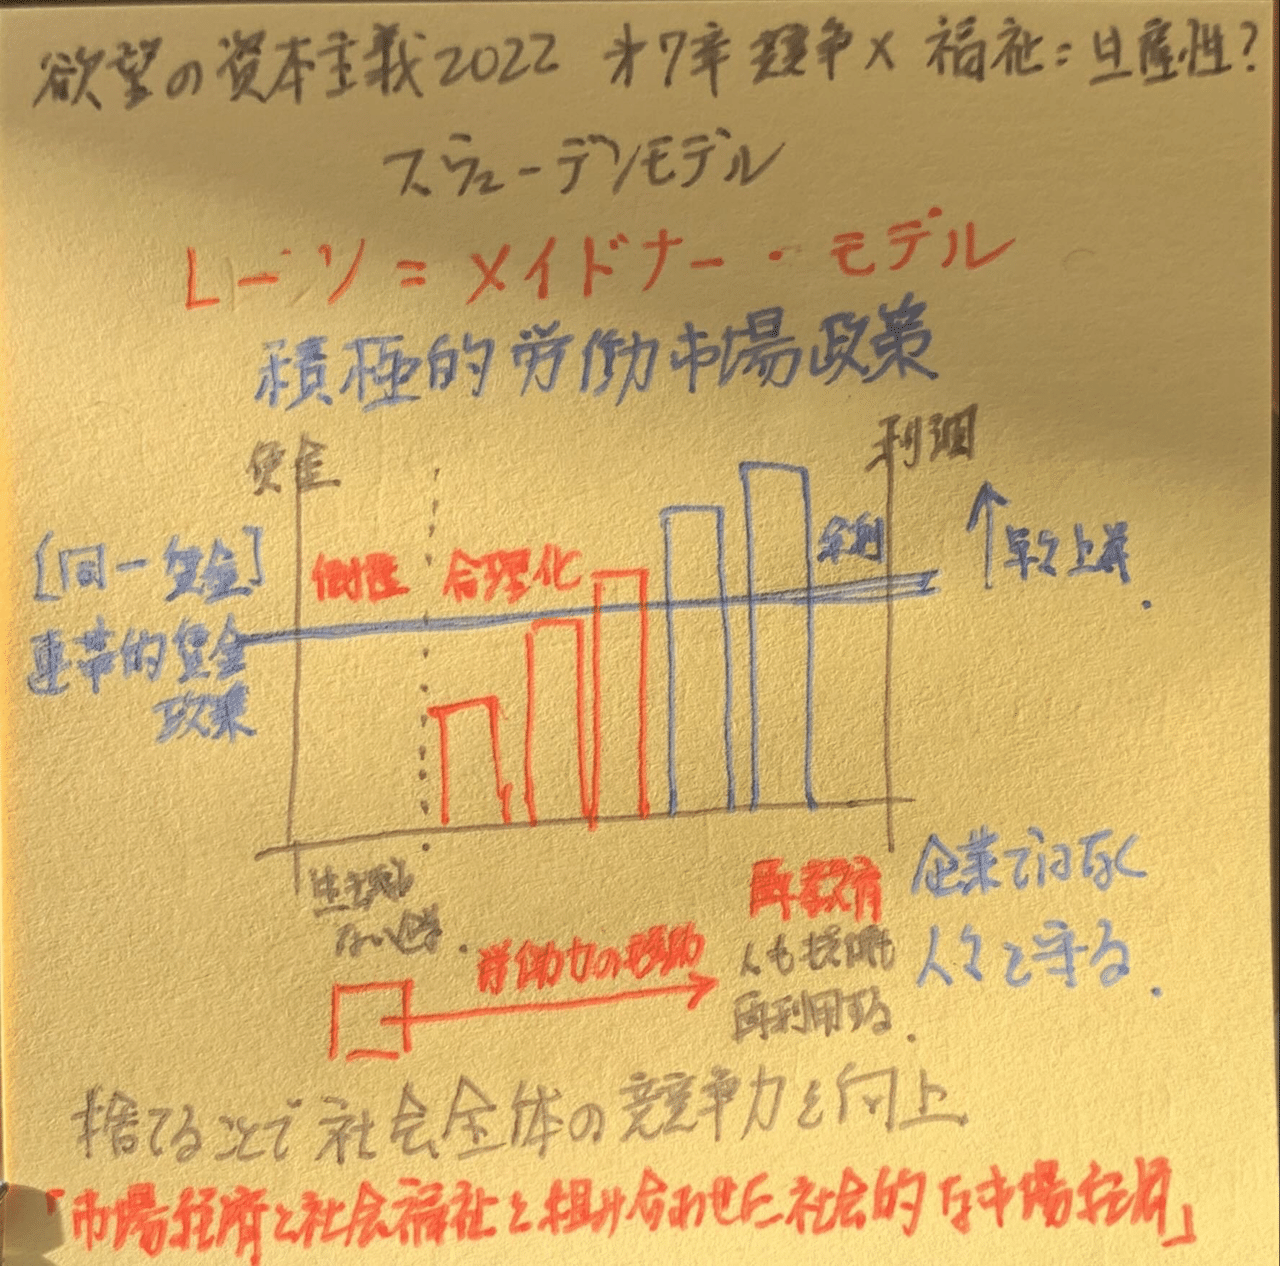 欲望の資本主義2022 才7章 競争×福祉=生産性?
スウェーデンモデル
レーン=メイドナー・モデル
積極的労働市場政策
賃金
利潤
[同一賃金]
連帯的賃金
政策
倒産 合理化
余剰
↑年々上昇.
生き残れ
ない企業.
労働力の移動
再教育
人も技術も
再利用する.
企業ではなく
人々を守る.
捨てることで社会全体の競争力を向上
「市場経済と社会福祉を組み合わせた社会的な市場経済」